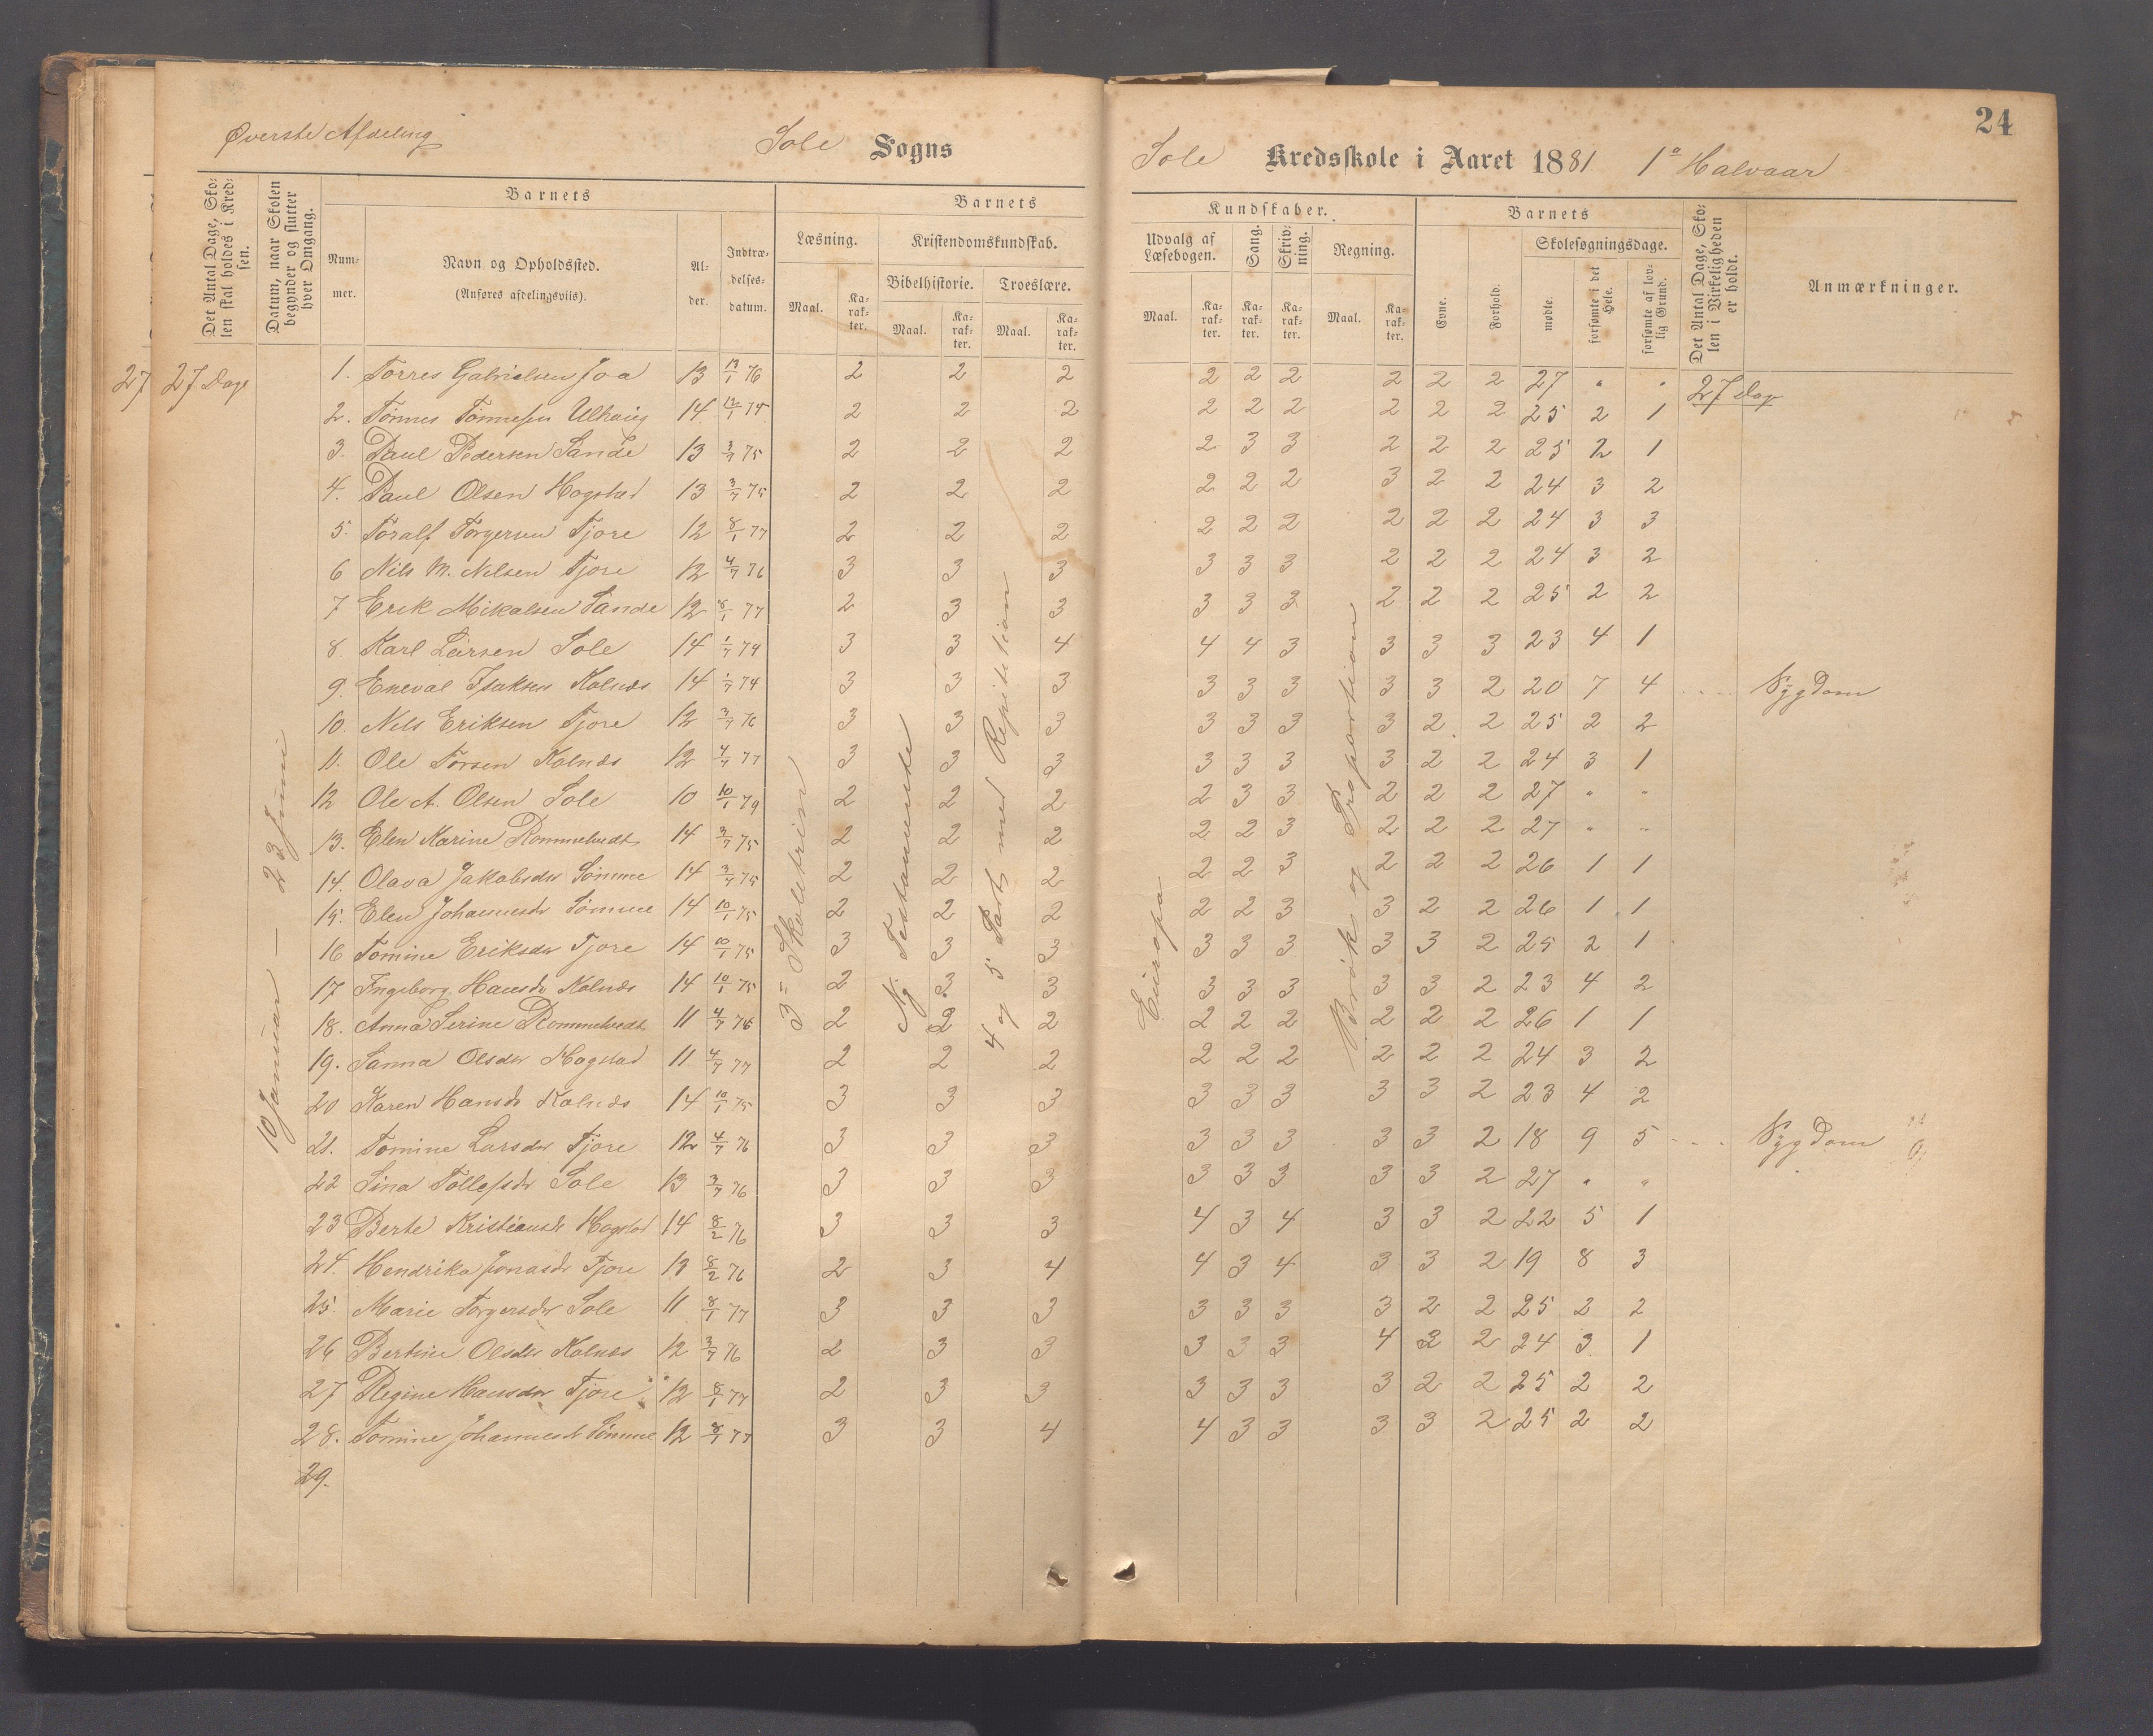 24
Øverste Afdeling Sole Sogns Sole Kredsskole i Aaret 1881 1ª Halvaar
Det Antal Dage, Skolen skal holdes i Kredsen.
Datum, naar Skolen begynder og slutter hver Omgang.
Barnets
Nummer.
Navn og Opholdssted.
(Anføres afdelingsviis).
Alder.
Indtrædelsesdatum.
Barnets
Læsning.
Maal.
Karakter.
Kristendomskundskab.
Bibelhistorie.
Maal.
Karakter.
Troeslære.
Maal.
Karakter.
Kundskaber.
Udvalg af Læsebogen.
Maal.
Karakter.
Sang.
Karakter.
Skrivning.
Karakter.
Regning.
Maal.
Karakter.
Barnets
Evne.
Forhold.
Skolesøgningsdage.
mødte.
forsømte i det Hele.
forsømte af lovlig Grund.
Det Antal Dage, Skolen i Virkeligheden er holdt.
Anmærkninger.
27 27 Dage
10 Januar — 23 Juni
3 = Skoletrin
Ny Testamente
4 og 5 Part med Repitition
Europa
Brøk og Proportion
1. Torres Gabrielsen Joa 13 76 2 2 2 2 2 2 2 2 2 27 " " 27 Dage
2. Tønnes Tønnesen 14 2 2 2 2 2 2 2 2 2 25 2 1
3. Paul Pedersen Sande 13 3/7 75 2 2 2 2 3 3 2 2 2 25 2 1
4. Paul Olsen Hogstad 13 3/7 75 2 2 2 2 2 2 3 2 2 24 3 2
5. Toralf Torgersen Tjore 12 8/1 77 2 2 2 2 2 2 2 2 2 24 3 3
6 Nils M. Nilsen Tjore 12 4/7 76 3 3 3 3 3 3 2 2 2 24 3 2
7 Erik Mikalsen Sande 12 8/1 77 2 3 3 3 3 3 2 2 2 25 2 2
8. Karl Larsen Sole 14 1/7 74 3 3 4 4 4 3 3 3 3 23 4 1
9. Eneval Isaksen Kolnes 14 1/7 74 3 3 3 3 3 3 3 3 2 20 7 4 Sygdom
10. Nils Eriksen Tjore 12 3/7 76 3 3 3 3 3 3 3 2 2 25 2 2
11. Ole Torsen Kolnes 12 4/7 77 3 3 3 3 3 3 3 2 2 24 3 1
12 Ole A. Olsen Sole 10 10/1 79 2 2 2 2 3 3 2 2 2 27 " "
13. Elen Karine Rommetvedt 14 3/7 75 2 2 2 2 2 3 2 2 2 27 " "
14. Olava Jakobsdr Sømme 14 3/7 75 2 2 2 2 2 3 2 2 2 26 1 1
15. Elen Johannesdr Sømme 14 10/1 75 2 2 2 2 2 3 3 2 2 26 1 1
16 Tomine Eriksdr Tjore 14 10/1 75 3 3 3 3 3 3 3 3 2 25 2 1
17 Ingeborg Hansdr Kolnes 14 10/1 75 2 3 3 3 3 3 3 3 2 23 4 2
18. Anna Serine Rommetvedt 11 4/7 76 2 2 2 2 2 2 2 2 2 26 1 1
19. Sanna Olsdr Hogstad 11 4/7 77 2 2 2 2 2 2 2 2 2 24 3 2
20 Karen Hansdr Kolnes 14 10/1 75 3 3 3 3 3 3 3 3 2 23 4 2
21. Tomine Larsdr Tjore 12 4/7 76 3 3 3 3 3 3 3 3 2 18 9 5 Sygdom
22 Sina Tollefsdr Sole 13 3/7 76 3 3 3 3 3 3 3 3 2 27 " "
23 Berte Kristiansdr Hogstad 14 8/2 76 3 3 3 4 3 4 3 3 2 22 5 1
24. Hendrika Jonasdr Tjore 13 8/2 76 2 3 4 4 3 4 3 3 2 19 8 3
25. Marie Torgersdr Sole 11 8/1 77 3 3 3 3 3 3 3 2 2 25 2 2
26 Bertine Olsdr Kolnes 12 3/7 76 2 3 3 3 3 3 4 2 2 24 3 1
27 Regine Hansdr Tjore 12 8/1 77 2 3 3 3 3 3 3 2 2 25 2 2
28. Tomine Johannesdr Sømme 12 8/1 77 3 3 4 4 3 3 3 3 2 25 2 2
29.